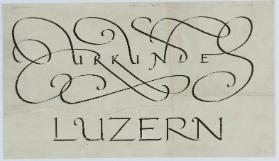 URKUNDE
LUZERN